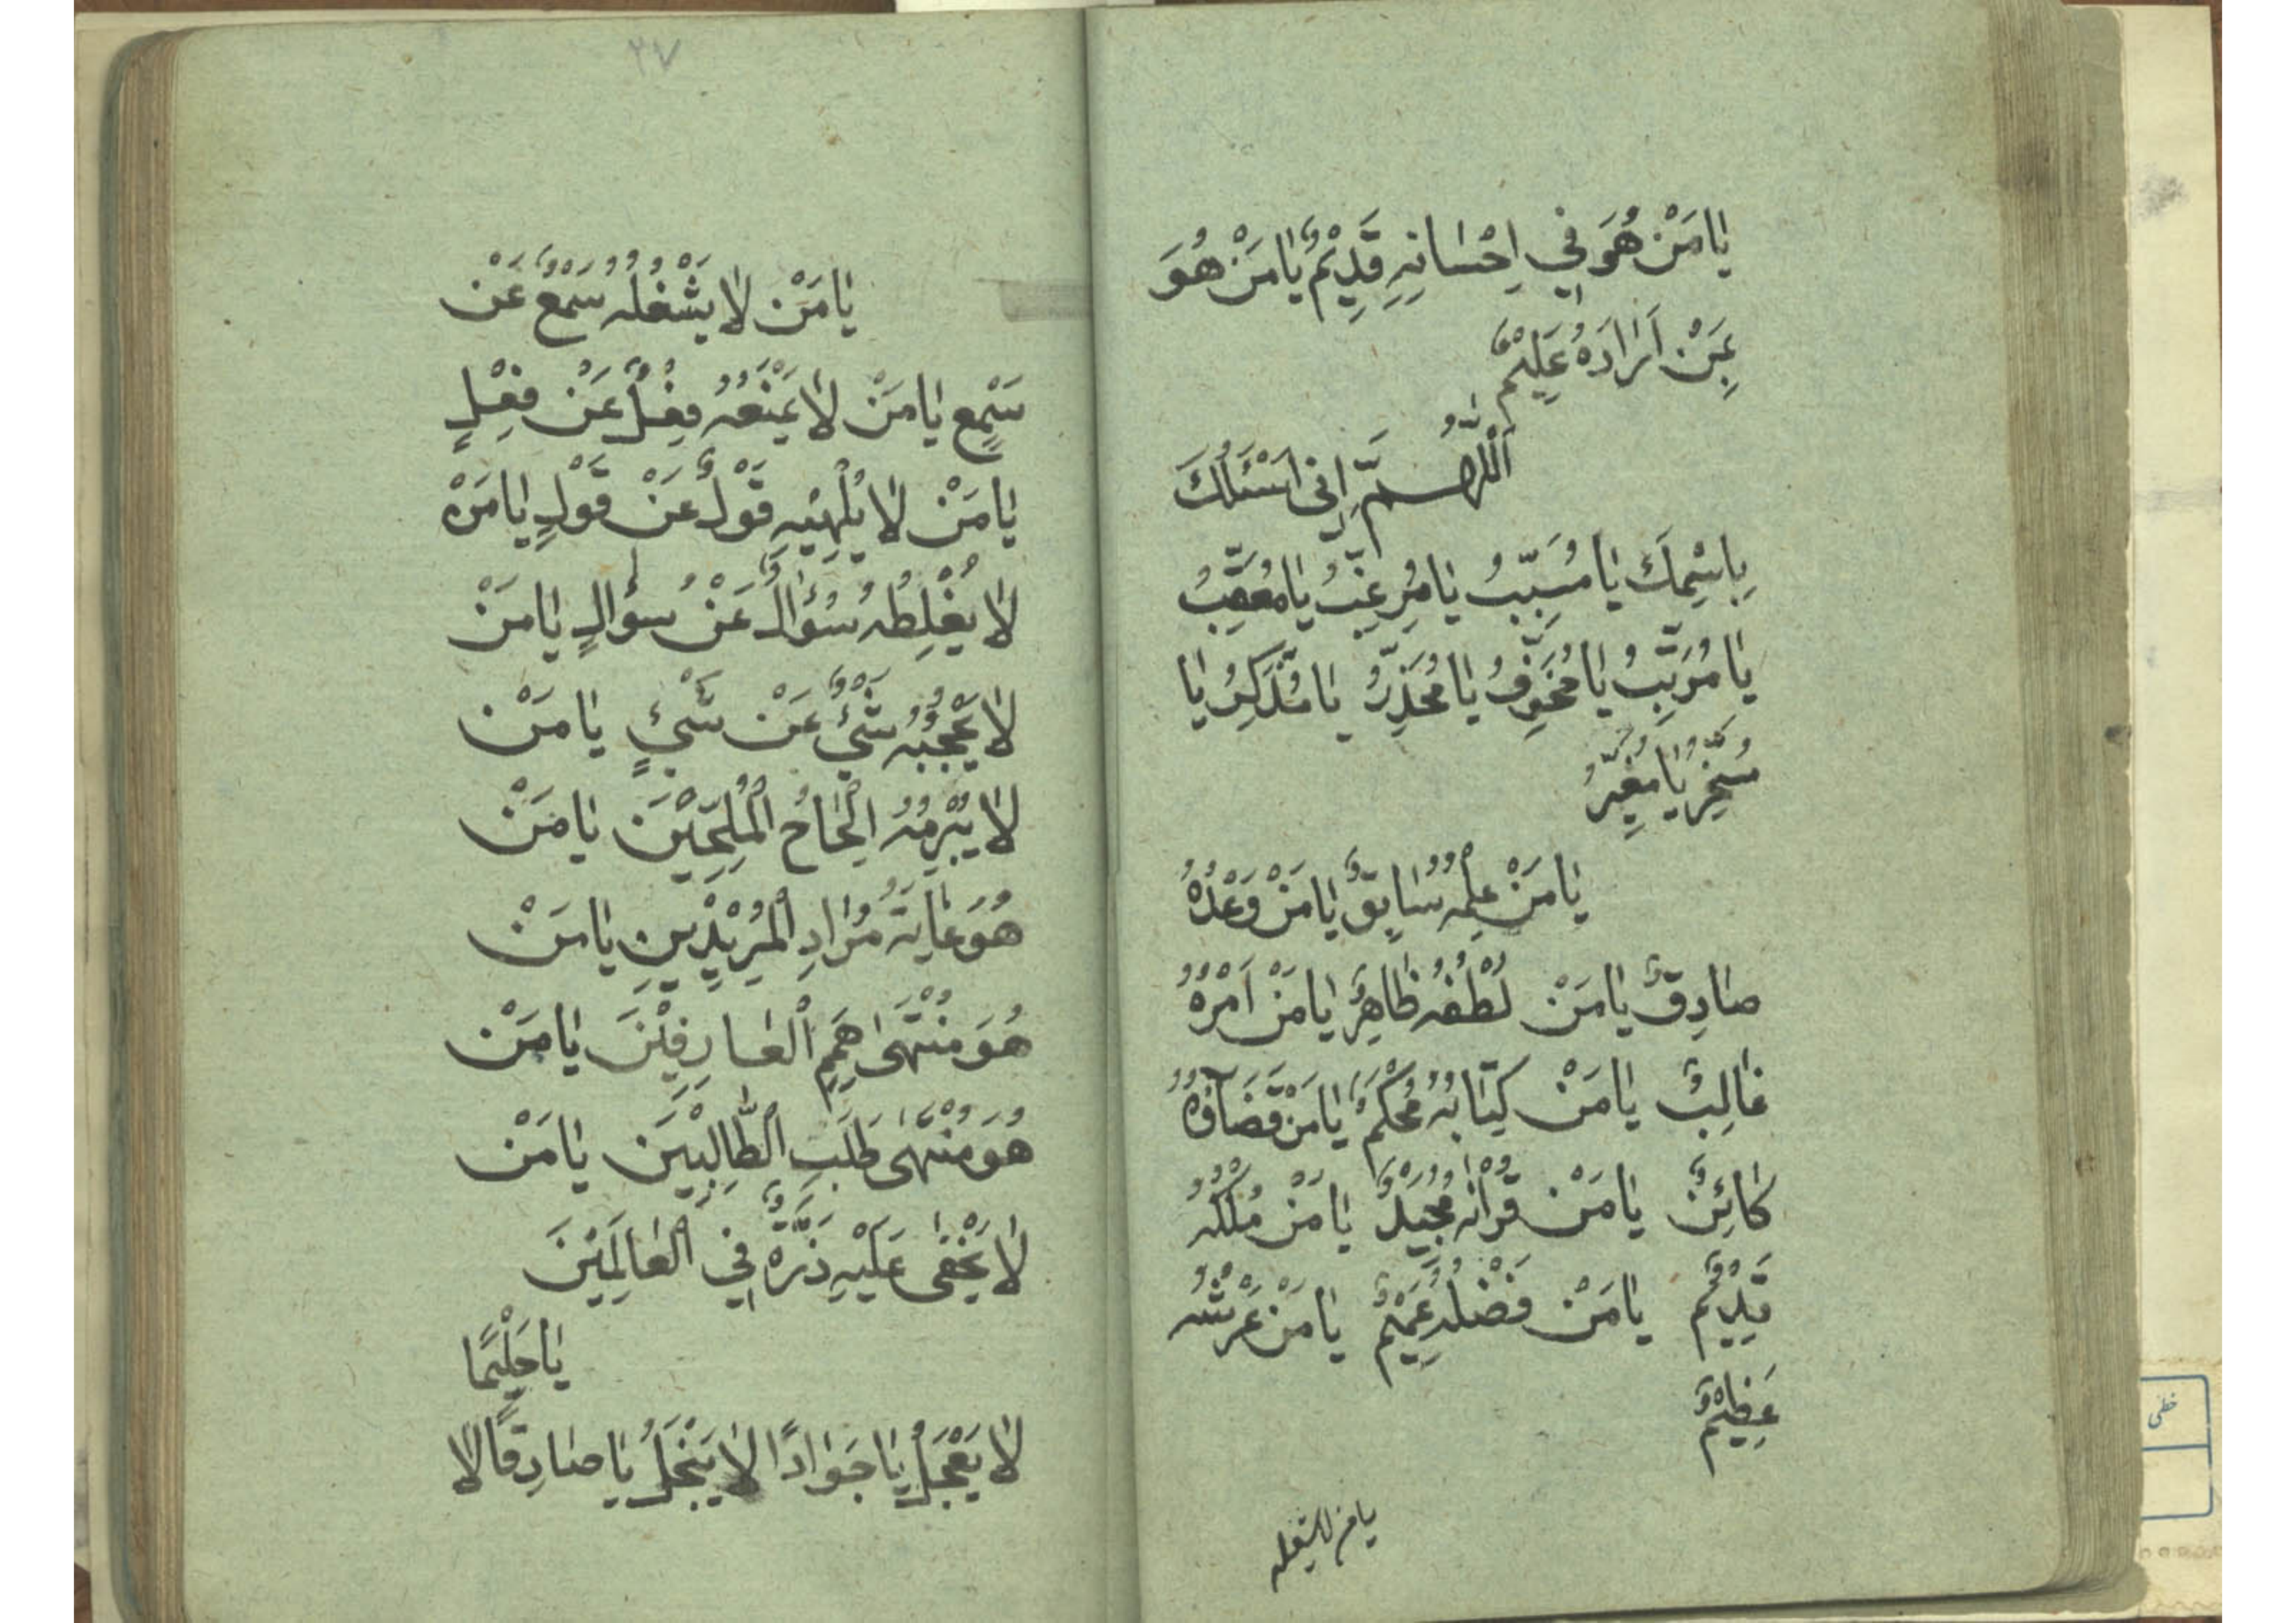 يٰا مَنْ هُوَ في اِحْسٰانِهِ قَدِيْمٌ يٰا مَنْ هُوَ
بِمَنْ اَرٰادَهُ عَلِيْمٌ
اَللّٰهُمَّ اِنّى اَسْئَلُكَ
بِاسْمِكَ يٰا مُسَبِّبُ يٰا مُرَغِّبُ يٰا مُعَقِّبُ
يٰا مُرَتِّبُ يٰا مُخَوِّفُ يٰا مُحَذِّرُ يٰا مُذَكِّرُ يٰا
مُسَخِّرُ يٰا مُغَيِّرُ
يٰا مَنْ عِلْمُهُ سٰابِقٌ يٰا مَنْ وَعْدُهُ
صٰادِقٌ يٰا مَنْ لُطْفُهُ ظٰاهِرٌ يٰا مَنْ اَمْرُهُ
غٰالِبٌ يٰا مَنْ كِتٰابُهُ مُحْكَمٌ يٰا مَنْ قَضَآؤُهُ
كٰائِنٌ يٰا مَنْ قُرْاٰنُهُ مَجِيْدٌ يٰا مَنْ مُلْكُهُ
قَدِيْمٌ يٰا مَنْ فَضْلُهُ عَمِيْمٌ يٰا مَنْ عَرْشُهُ
عَظِيْمٌ
يا من لا يشغله
٢٧
يٰا مَنْ لٰا يَشْغَلُهُ سَمْعٌ عَنْ
سَمْعٍ يٰا مَنْ لٰا يَمْنَعُهُ فِعْلٌ عَنْ فِعْلٍ
يٰا مَنْ لٰا يُلْهِيْهِ قَوْلٌ عَنْ قَوْلٍ يٰا مَنْ
لٰا يُغْلِطُهُ سُؤٰالٌ عَنْ سُؤٰالٍ يٰا مَنْ
لٰا يَحْجُبُهُ شَيْئٌ عَنْ شَيْئٍ يٰا مَنْ
لٰا يُبْرِمُهُ اِلْحٰاحُ الْمُلِحِّيْنَ يٰا مَنْ
هُوَ غٰايَةُ مُرٰادِ الْمُرِيْدِيْنَ يٰا مَنْ
هُوَ مُنْتَهىٰ هِمَمِ الْعٰارِفِيْنَ يٰا مَنْ
هُوَ مُنْتَهىٰ طَلَبِ الطّٰالِبِيْنَ يٰا مَنْ
لٰا يَخْفىٰ عَلَيْهِ ذَرَّةٌ فِي الْعٰالَمِيْنَ
يٰا حَلِيْمًا
لٰا يَعْجَلُ يٰا جَوٰادًا لٰا يَبْخَلُ يٰا صٰادِقًا لٰا
خطى